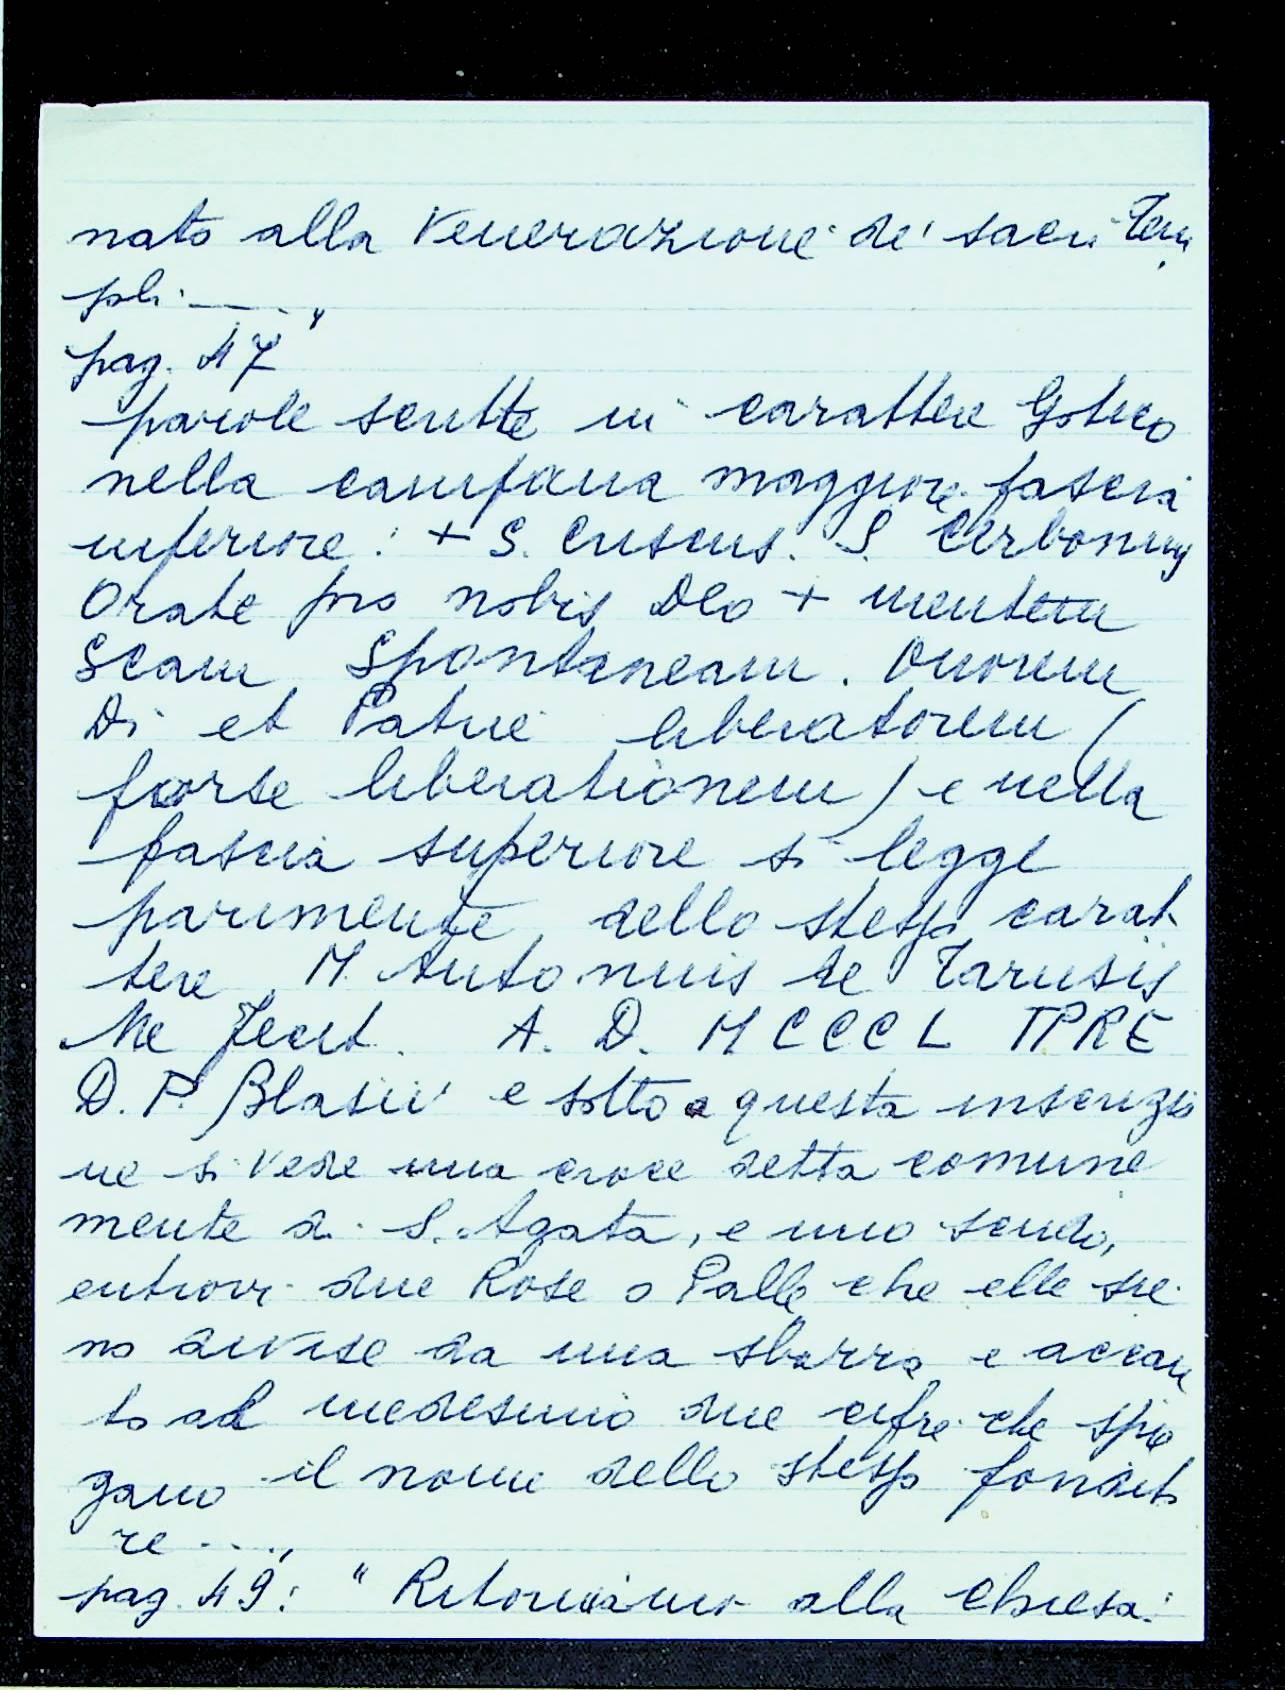 nato alla Venerazione de' sacri Tem
pli .___."
pag. 47
parole scritte in carattere Gotico
nella campana maggiore fascia
inferiore: + S. Criscus. S. Cerbonius
Orate pro nobis Deo + mentem
Scam Spontaneam. Onorem
Di et Patrie liberatorem (
forse liberationem) e nella
fascia superiore si legge
parimente dello stesso carat
tere M. Antonius de Tarusiis
Me Fecit. A. D. MCCCL TPRE
D. P. Blasii e sotto a questa inscrizio
ne si vede una croce detta comune
mente di S. Agata, e uno scudo,
entrovi due Rose o Palle che elle sie
no divise da una sbarra e accan
to al medesimo due cifre che spie
gano il nome dello stesso fondito
re ...."
pag. 49: " Ritorniamo alla Chiesa: